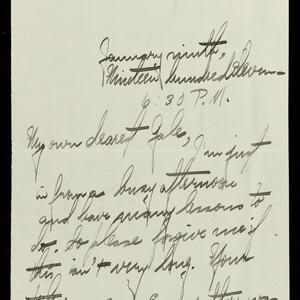 January ninth,
Nineteen hundred Eleven—
6:30 P.M.
My own dearest Gale,
I'm just
in from a busy afternoon
and have many lessons to
do. So please forgive me if
this isn't very long. Your